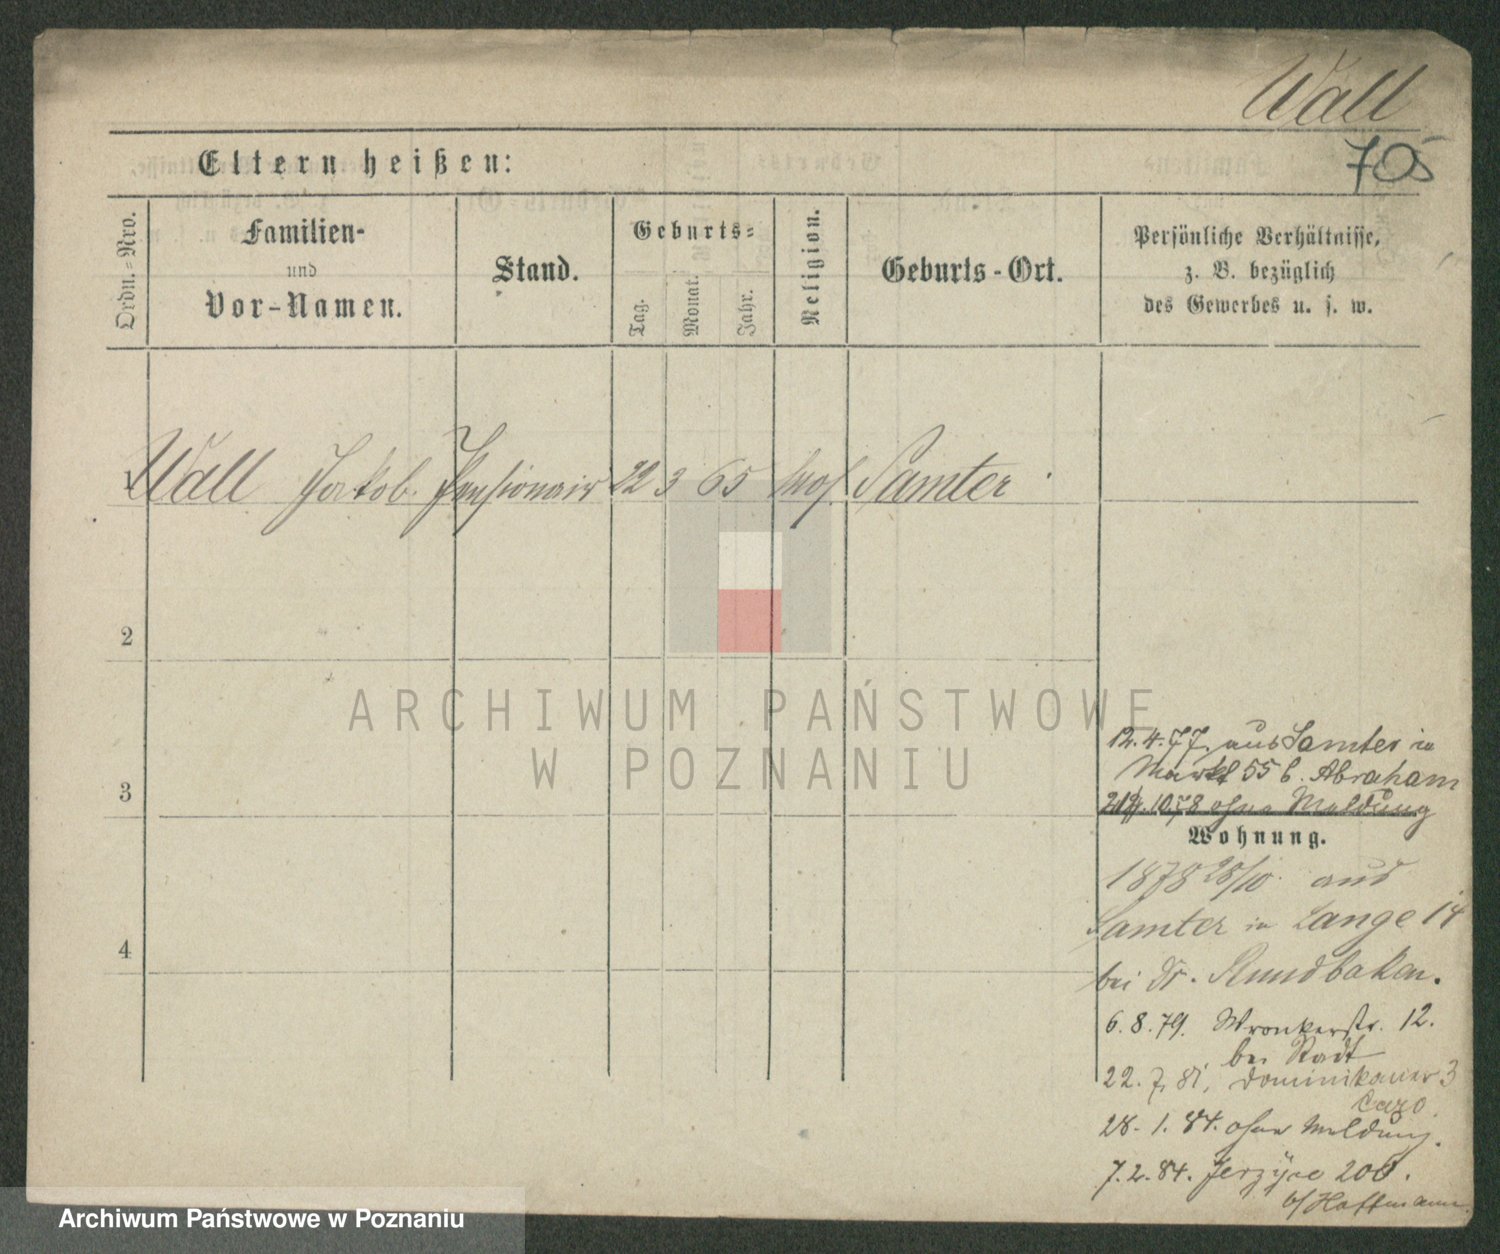 Wall
705
Eltern heißen:
Ordn.=Nro.
Familien-
und
Vor-Namen.
Stand.
Geburts=
Tag.
Monat.
Jahr.
Religion.
Geburts-Ort.
Persönliche Verhältnisse,
z. B. bezüglich
des Gewerbes u. s. w.
1 Wall Jakob. Pensionair 22 3 65 mos. Samter
2
3
4
12.4.77. aus Samter in
Markt 55 b. Abraham
10.78 ohne Meldung
Wohnung.
1878 28/10. aus
Samter in Lange 14
bei Dr.
6.8.79. Wronkerstr. 12.
bei Stadt
22.7.81, Dominikaner 3
28.1.84. ohne Meldung.
7.2.84. Jerzyce 200.
b/ Hoffmann
ARCHIWUM PAŃSTWOWE
W POZNANIU
Archiwum Państwowe w Poznaniu